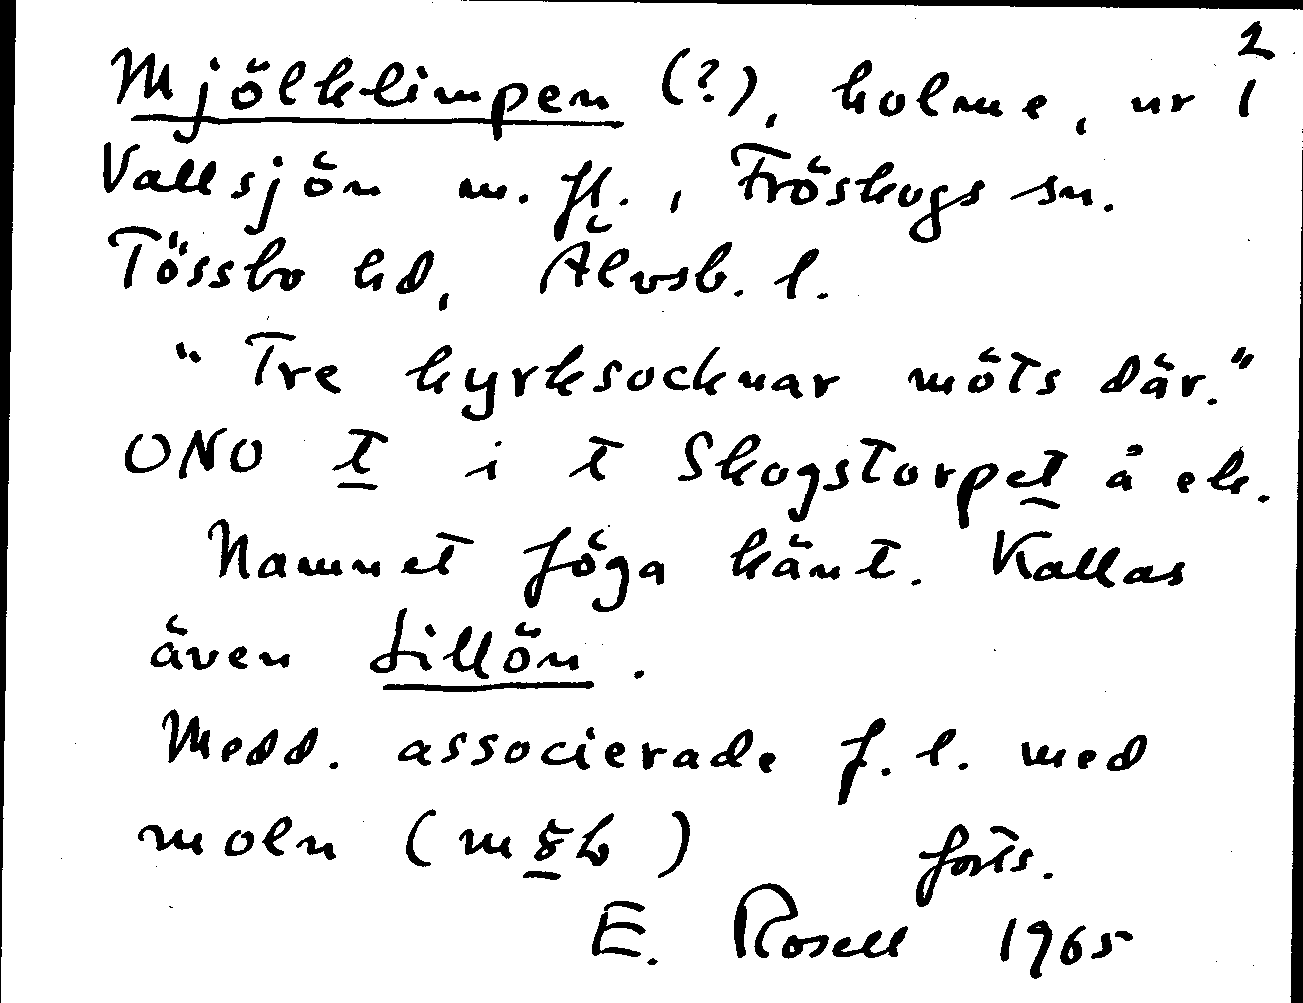 2
Mjölklimpen (?), holme, nr 1
Vallsjön m. fl., Fröskogs sn.
Tössbo hd, Älvsb. l.
"Tre kyrksocknar möts där."
ONO t i t Skogstorpet å ek.
Namnet föga känt. Kallas
även Lillön.
Medd. associerade f. l. med
moln (                ) forts.
E. Rosell 1965